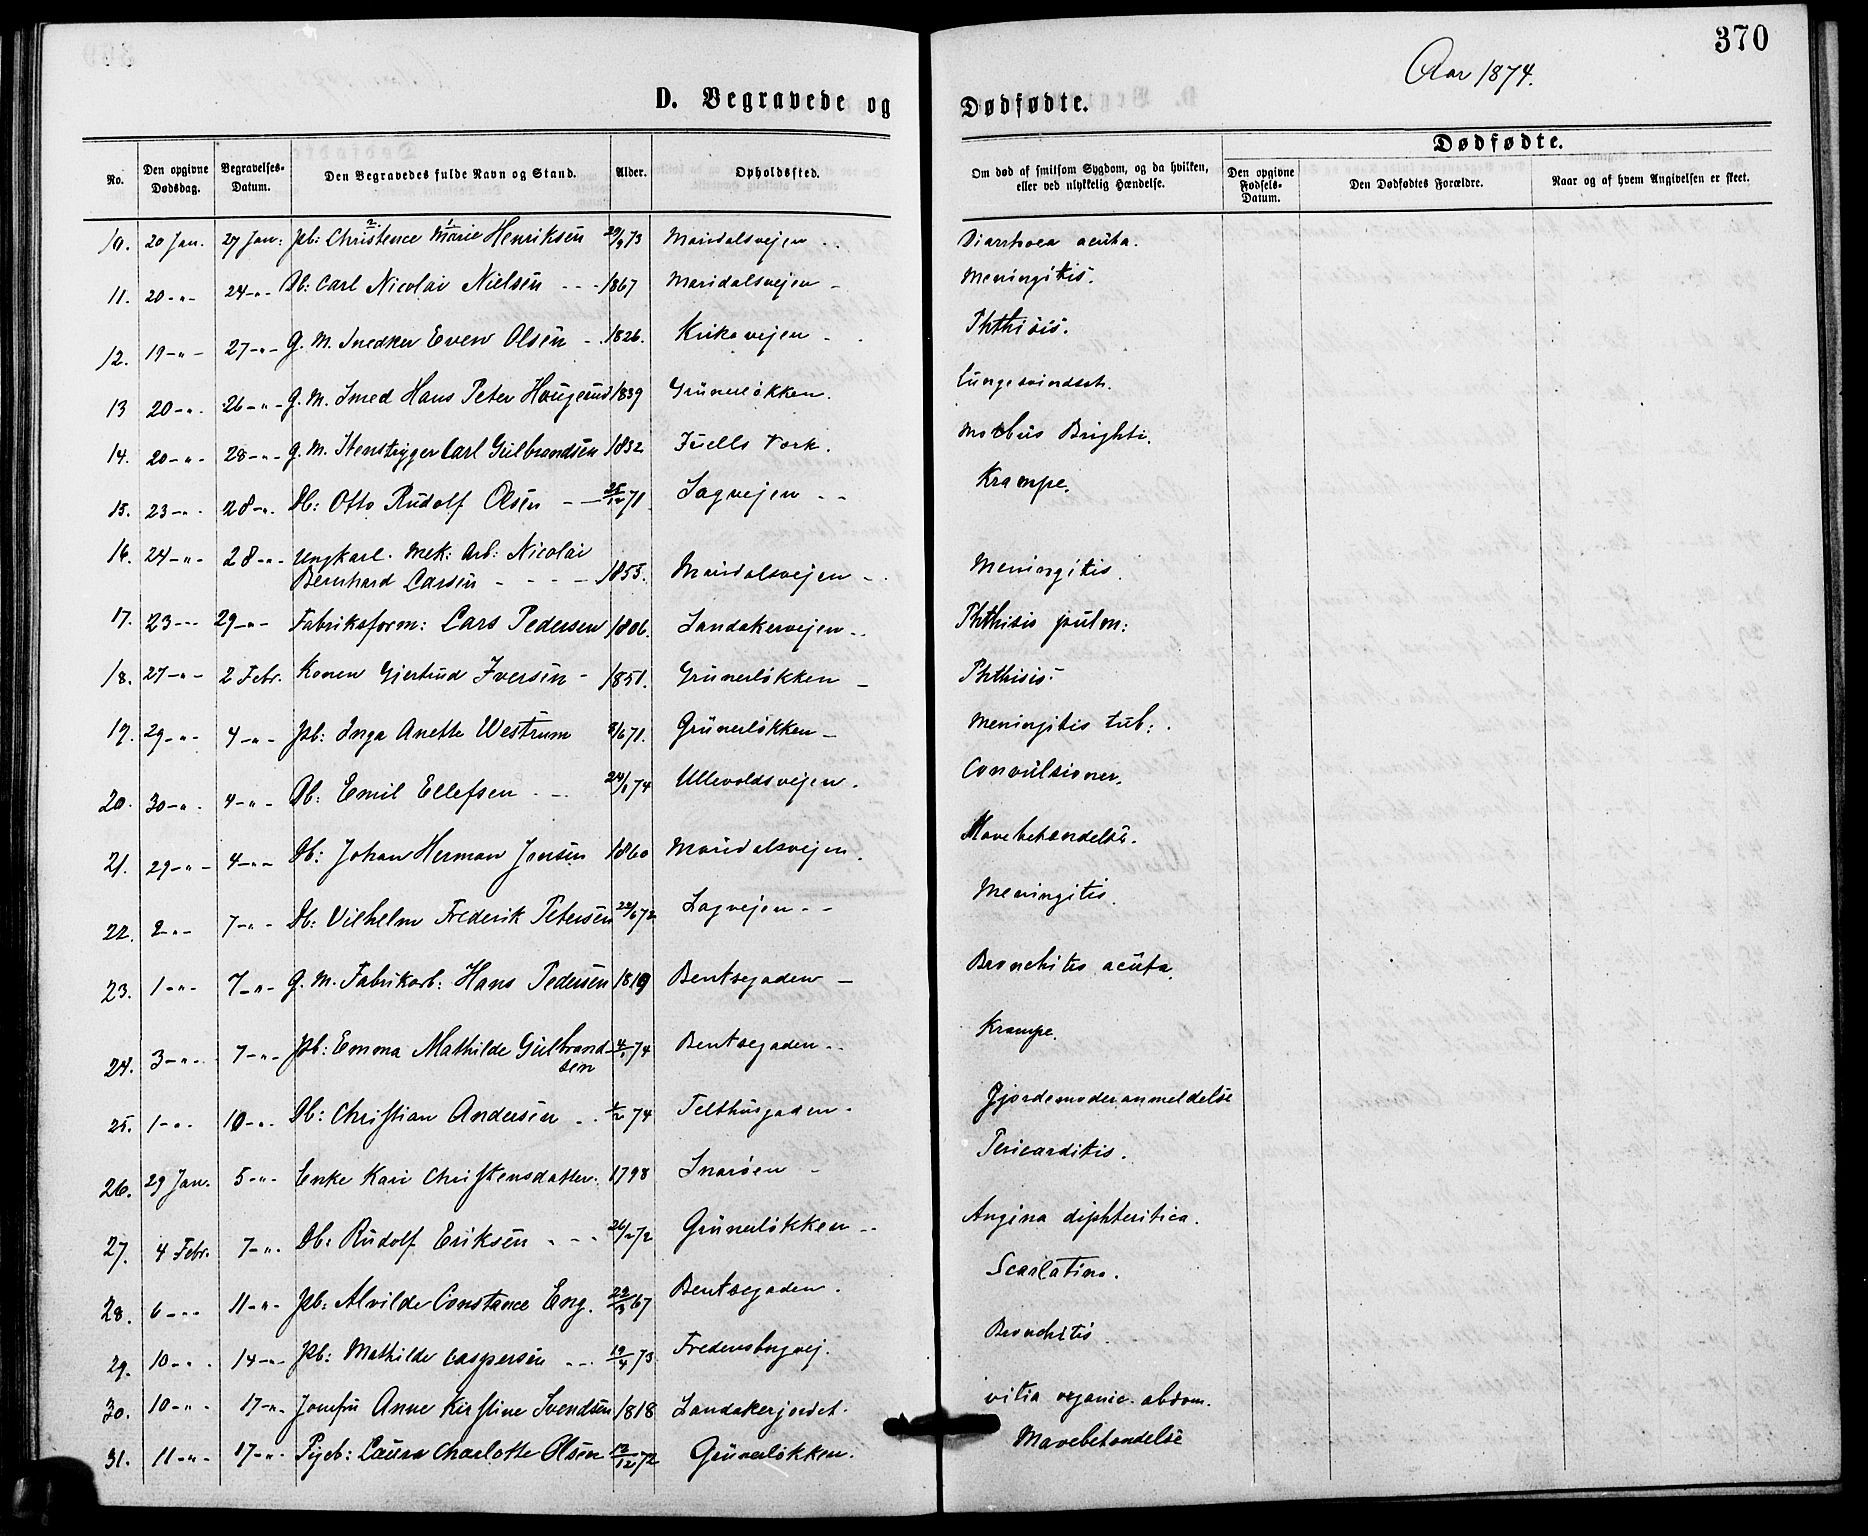 370
Aar 1874.
D. Begravede og Dødfødte.
No. Den opgivne Dødsdag. Begravelses-Datum. Den Begravedes fulde Navn og Stand. Alder. Opholdssted. Om død af smitsom Sygdom, og da hvilken, eller ved ulykkelig Hændelse. Dødfødte.
Den opgivne Fødsels-Datum. Den Dødfødtes Forældre. Naar og af hvem Angivelsen er skeet.
10. 20 Jan. 27 Jan: Pb: Christence Marie Henriksen 29/9 73 Maridalsvejen - - Diarrhoea acuta.
11. 20 - " - 24 - " - Db: Carl Nicolai Nielsen - - - 1867 Maridalsvejen - Meningitis.
12. 19 - " - 27 - " - G. M. Snedker Even Olsen - - 1826. Kirkevejen - - Phthisis.
13 20 - " - 26 - " - G. M. Smed Hans Peter Haugerud 1839 Grünerløkken. Lungesvindsot.
14. 20 - " - 28 - " - G. M. Stenbrygger Carl Gulbrandsen 1832 Juells Værk. Morbus Brighti.
15. 23 - " - 28 - " - Db: Otto Rudolf Olsen - - 25/12 71. Sagvejen - - Krampe.
16. 24 - " - 28 - " - Ungkarl. Mek: Arb: Nicolai
Bernhard Larsen - - - - 1853. Maridalsvejen - - Meningitis.
17. 23 - - - 29 - " - Fabriksform: Lars Pedersen 1806. Sandakervejen - - Phthisis pulm:
18. 27 - " - 2 Febr. Konen Gjertrud Iversen - 1851. Grünerløkken - Phthisis.
19. 29 - " - 4 - " - Pb: Inga Anette Westrum 8/6 71. Grünerløkken - Meningitis tub: .
20. 30 - " - 4 - " - Db: Emil Ellefsen - - 24/1 74 Ullevoldsvejen. Convulsioner.
21. 29 - " - 4 - " - Db: Johan Herman Jensen 1860 Maridalsvejen. Mavebetændelse.
22. 2 - " - 7 - " - Db: Vilhelm Frederik Petersen 22/6 72 Sagvejen - - Meningitis.
23. 1 - " - 7 - " - G. M. Fabrikarb: Hans Pedersen 1819 Bentsegaden - Bronchitis acuta.
24. 3 - " - 7 - " - Pb: Emma Mathilde Gulbrand-
sen 4/1 74 Bentsegaden - - Krampe.
25. 1 - " - 10 - " - Db: Christian Andersen - - 1/2 74 Telthusgaden - Gjordemoderanmeldelse
26. 29 Jan. 5 - " - Enke Kari Christensdatter. 1798 Snarøen - Pericarditis.
27. 4 Febr. 7 - " - Db: Rudolf Eriksen - - - 26/2 72 Grünerløkken - - Angina diphteritica.
28. 6 - " - 11 - " - Pb: Alvilde Constance Eng. 22/3 67 Bentsegaden. Scarlatina.
29. 10 - " - 14 - " - Pb: Mathilde Caspersen - - - 19/4 73 Fredensborgvej. Bronchitis.
30. 10 - " - 17 - " - Jomfru Anne Kirstine Svendsen 1818 Sandakerjordet. vitia organic. abdom.
31. 11 - " - 17 - " - Pigeb: Laura Charlotte Olsen 12/12 72 Grünerløkken. Mavebetændelse